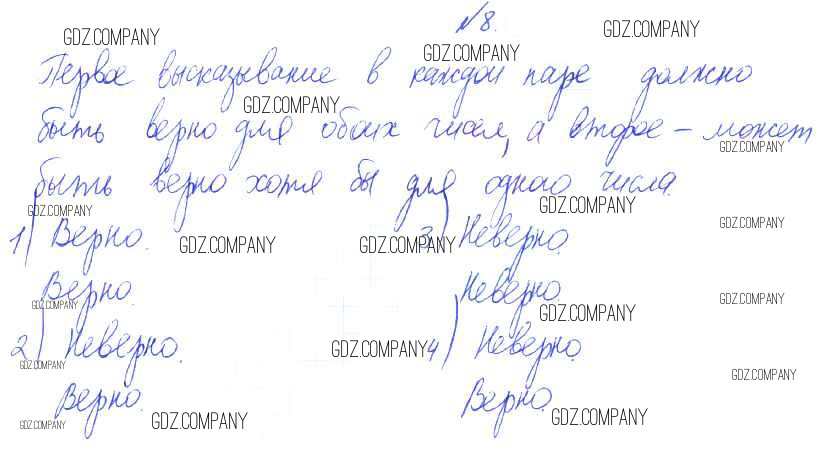 №8.
GDZ.COMPANY GDZ.COMPANY
Первое высказывание в каждой паре должно
GDZ.COMPANY
GDZ.COMPANY
быть верно для обоих чисел, а второе – может
GDZ.COMPANY
быть верно хотя бы для одного числа.
GDZ.COMPANY GDZ.COMPANY
1) Верно. 3) Неверно.
GDZ.COMPANY GDZ.COMPANY GDZ.COMPANY
Верно. Неверно.
GDZ.COMPANY GDZ.COMPANY GDZ.COMPANY
2) Неверно. 4) Неверно.
GDZ.COMPANY GDZ.COMPANY GDZ.COMPANY
Верно. Верно.
GDZ.COMPANY GDZ.COMPANY GDZ.COMPANY